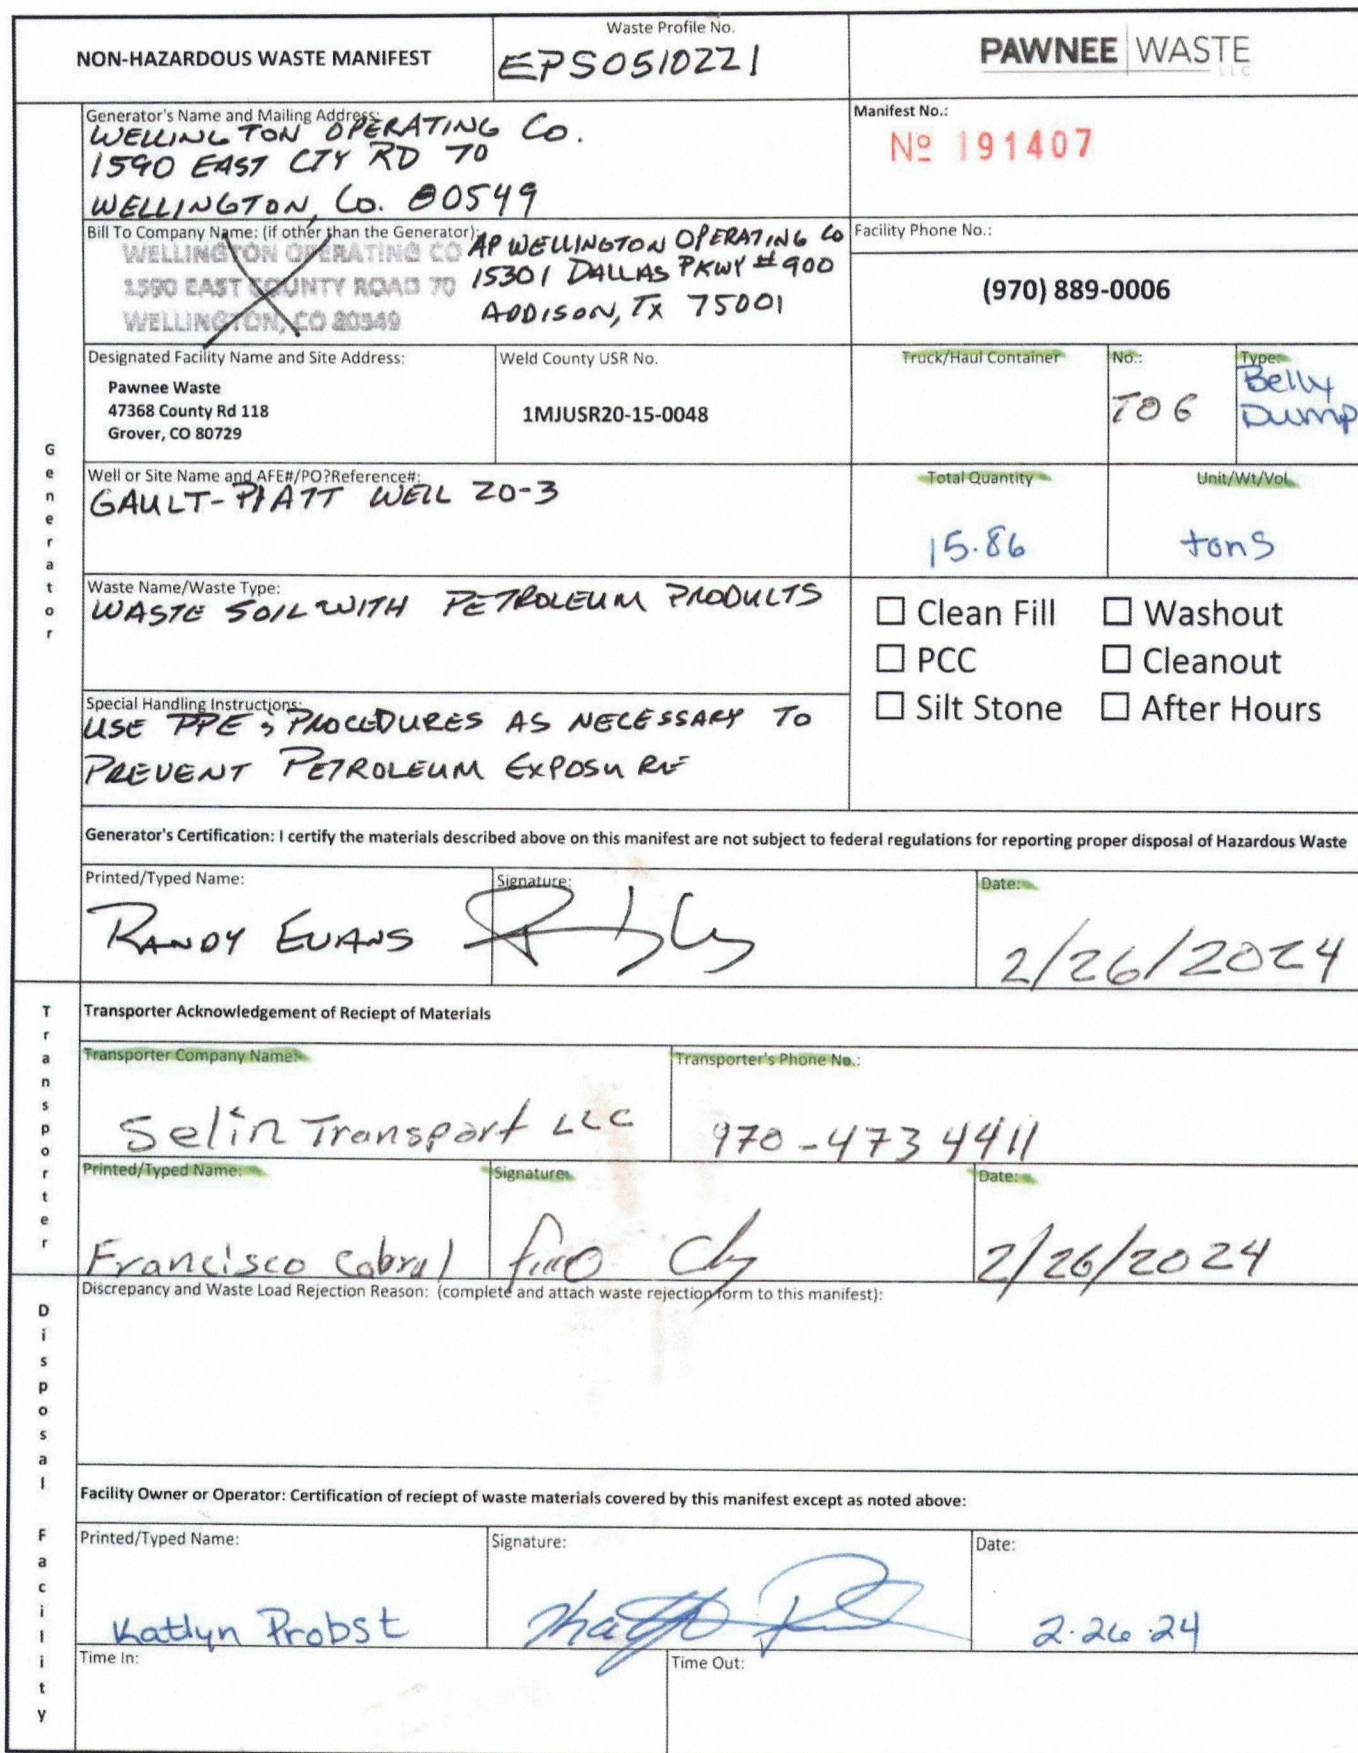 NON-HAZARDOUS WASTE MANIFEST
Waste Profile No.
EPS0510221
PAWNEE WASTE
LLC
Generator's Name and Mailing Address:
WELLINGTON OPERATING CO.
1590 EAST CTY RD 70
WELLINGTON, CO. 80549
Manifest No.:
Nº 191407
Bill To Company Name: (if other than the Generator):
WELLINGTON OPERATING CO
1590 EAST COUNTY ROAD 70
WELLINGTON, CO 80549
AP WELLINGTON OPERATING CO
15301 DALLAS PKWY #900
ADDISON, TX 75001
Facility Phone No.:
(970) 889-0006
Designated Facility Name and Site Address:
Pawnee Waste
47368 County Rd 118
Grover, CO 80729
Weld County USR No.
1MJUSR20-15-0048
Truck/Haul Container
No.:
T06
Type:
Belly
Dump
Generator
Well or Site Name and AFE#/PO?Reference#:
GAULT-PIATT WELL 20-3
Total Quantity
15.86
Unit/Wt/Vol
tons
Waste Name/Waste Type:
WASTE SOIL WITH PETROLEUM PRODULTS
☐ Clean Fill ☐ Washout
☐ PCC ☐ Cleanout
☐ Silt Stone ☐ After Hours
Special Handling Instructions:
USE PPE & PROCEDURES AS NECESSARY TO
PREVENT PETROLEUM EXPOSURE
Generator's Certification: I certify the materials described above on this manifest are not subject to federal regulations for reporting proper disposal of Hazardous Waste
Printed/Typed Name:
RANDY EVANS
Signature:
Date:
2/26/2024
Transporter
Transporter Acknowledgement of Reciept of Materials
Transporter Company Name:
Selin Transport LLC
Transporter's Phone No.:
970-473 4411
Printed/Typed Name:
Francisco Cabral
Signature:
Date:
2/26/2024
Disposal Facility
Discrepancy and Waste Load Rejection Reason: (complete and attach waste rejection form to this manifest):
Facility Owner or Operator: Certification of reciept of waste materials covered by this manifest except as noted above:
Printed/Typed Name:
Katlyn Probst
Signature:
Date:
2.26.24
Time In:
Time Out: